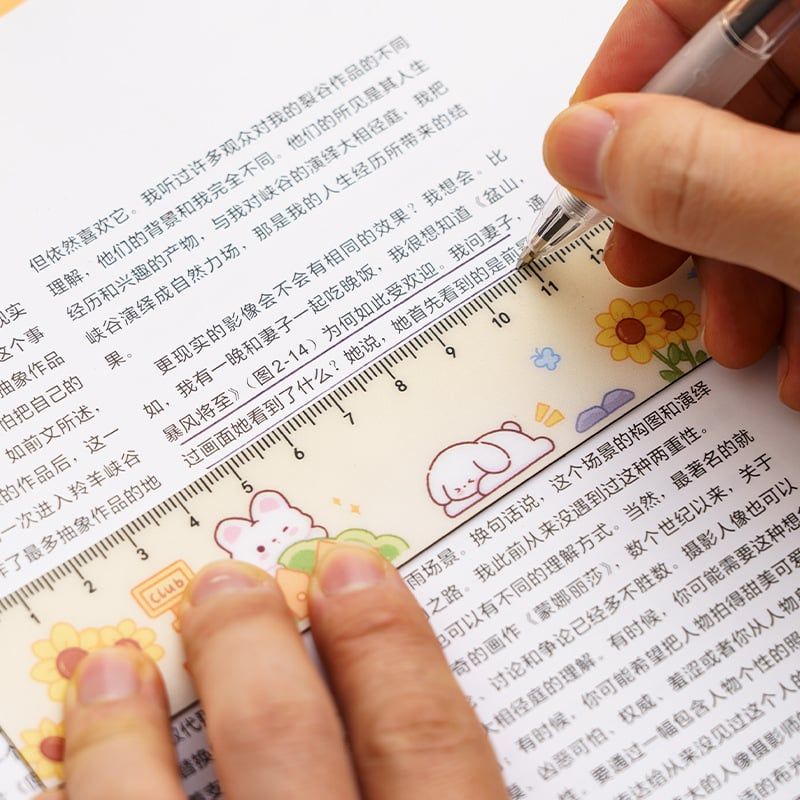 但依然喜欢它。我听过许多观众对我的裂谷作品的不同
理解，他们的背景和我完全不同。他们的所见是其人生
经历和兴趣的产物，与我对峡谷的演绎大相径庭，我把
峡谷演绎成自然力场，那是我的人生经历所带来的结
果。
更现实的影像会不会有相同的效果？我想会。比
如，我有一晚和妻子一起吃晚饭，我很想知道《盆山，
暴风将至》（图2-14）为何如此受欢迎。我问妻子，通
过画面她看到了什么？她说，她首先看到的是前
现实
这个事
抽象作品
怕把自己的
如前文所述，
的作品后，这一
一次进入羚羊峡谷
作了最多抽象作品的地
1 2 3 4 5 6 7 8 9 10 11 12
Club
雨场景。换句话说，这个场景的构图和演绎
之路。我此前从来没遇到过这种两重性。
也可以有不同的理解方式。当然，最著名的就
奇的画作《蒙娜丽莎》，数个世纪以来，关于
、讨论和争论已经多不胜数。摄影人像也可以
大相径庭的理解。有时候，你可能需要这种想
，有时候，你可能希望把人物拍得甜美可爱
、凶恶可怕、权威、羞涩或者你从人物
性，要通过一幅包含人物个性的照
表达给从来没见过这个人的
大的人像摄影师